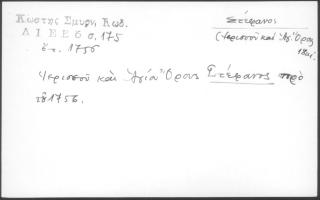 Κωστῆς Σμυρν. Κωδ.
ΔΙΕΕ 6 σ. 175
ἔτ. 1756
Στέφανος
(Ἱερισσοῦ καὶ Ἁγ. Ὄρους
Ἱερισσοῦ καὶ Ἁγίου Ὄρους Στέφανος πρὸ
τοῦ 1756.